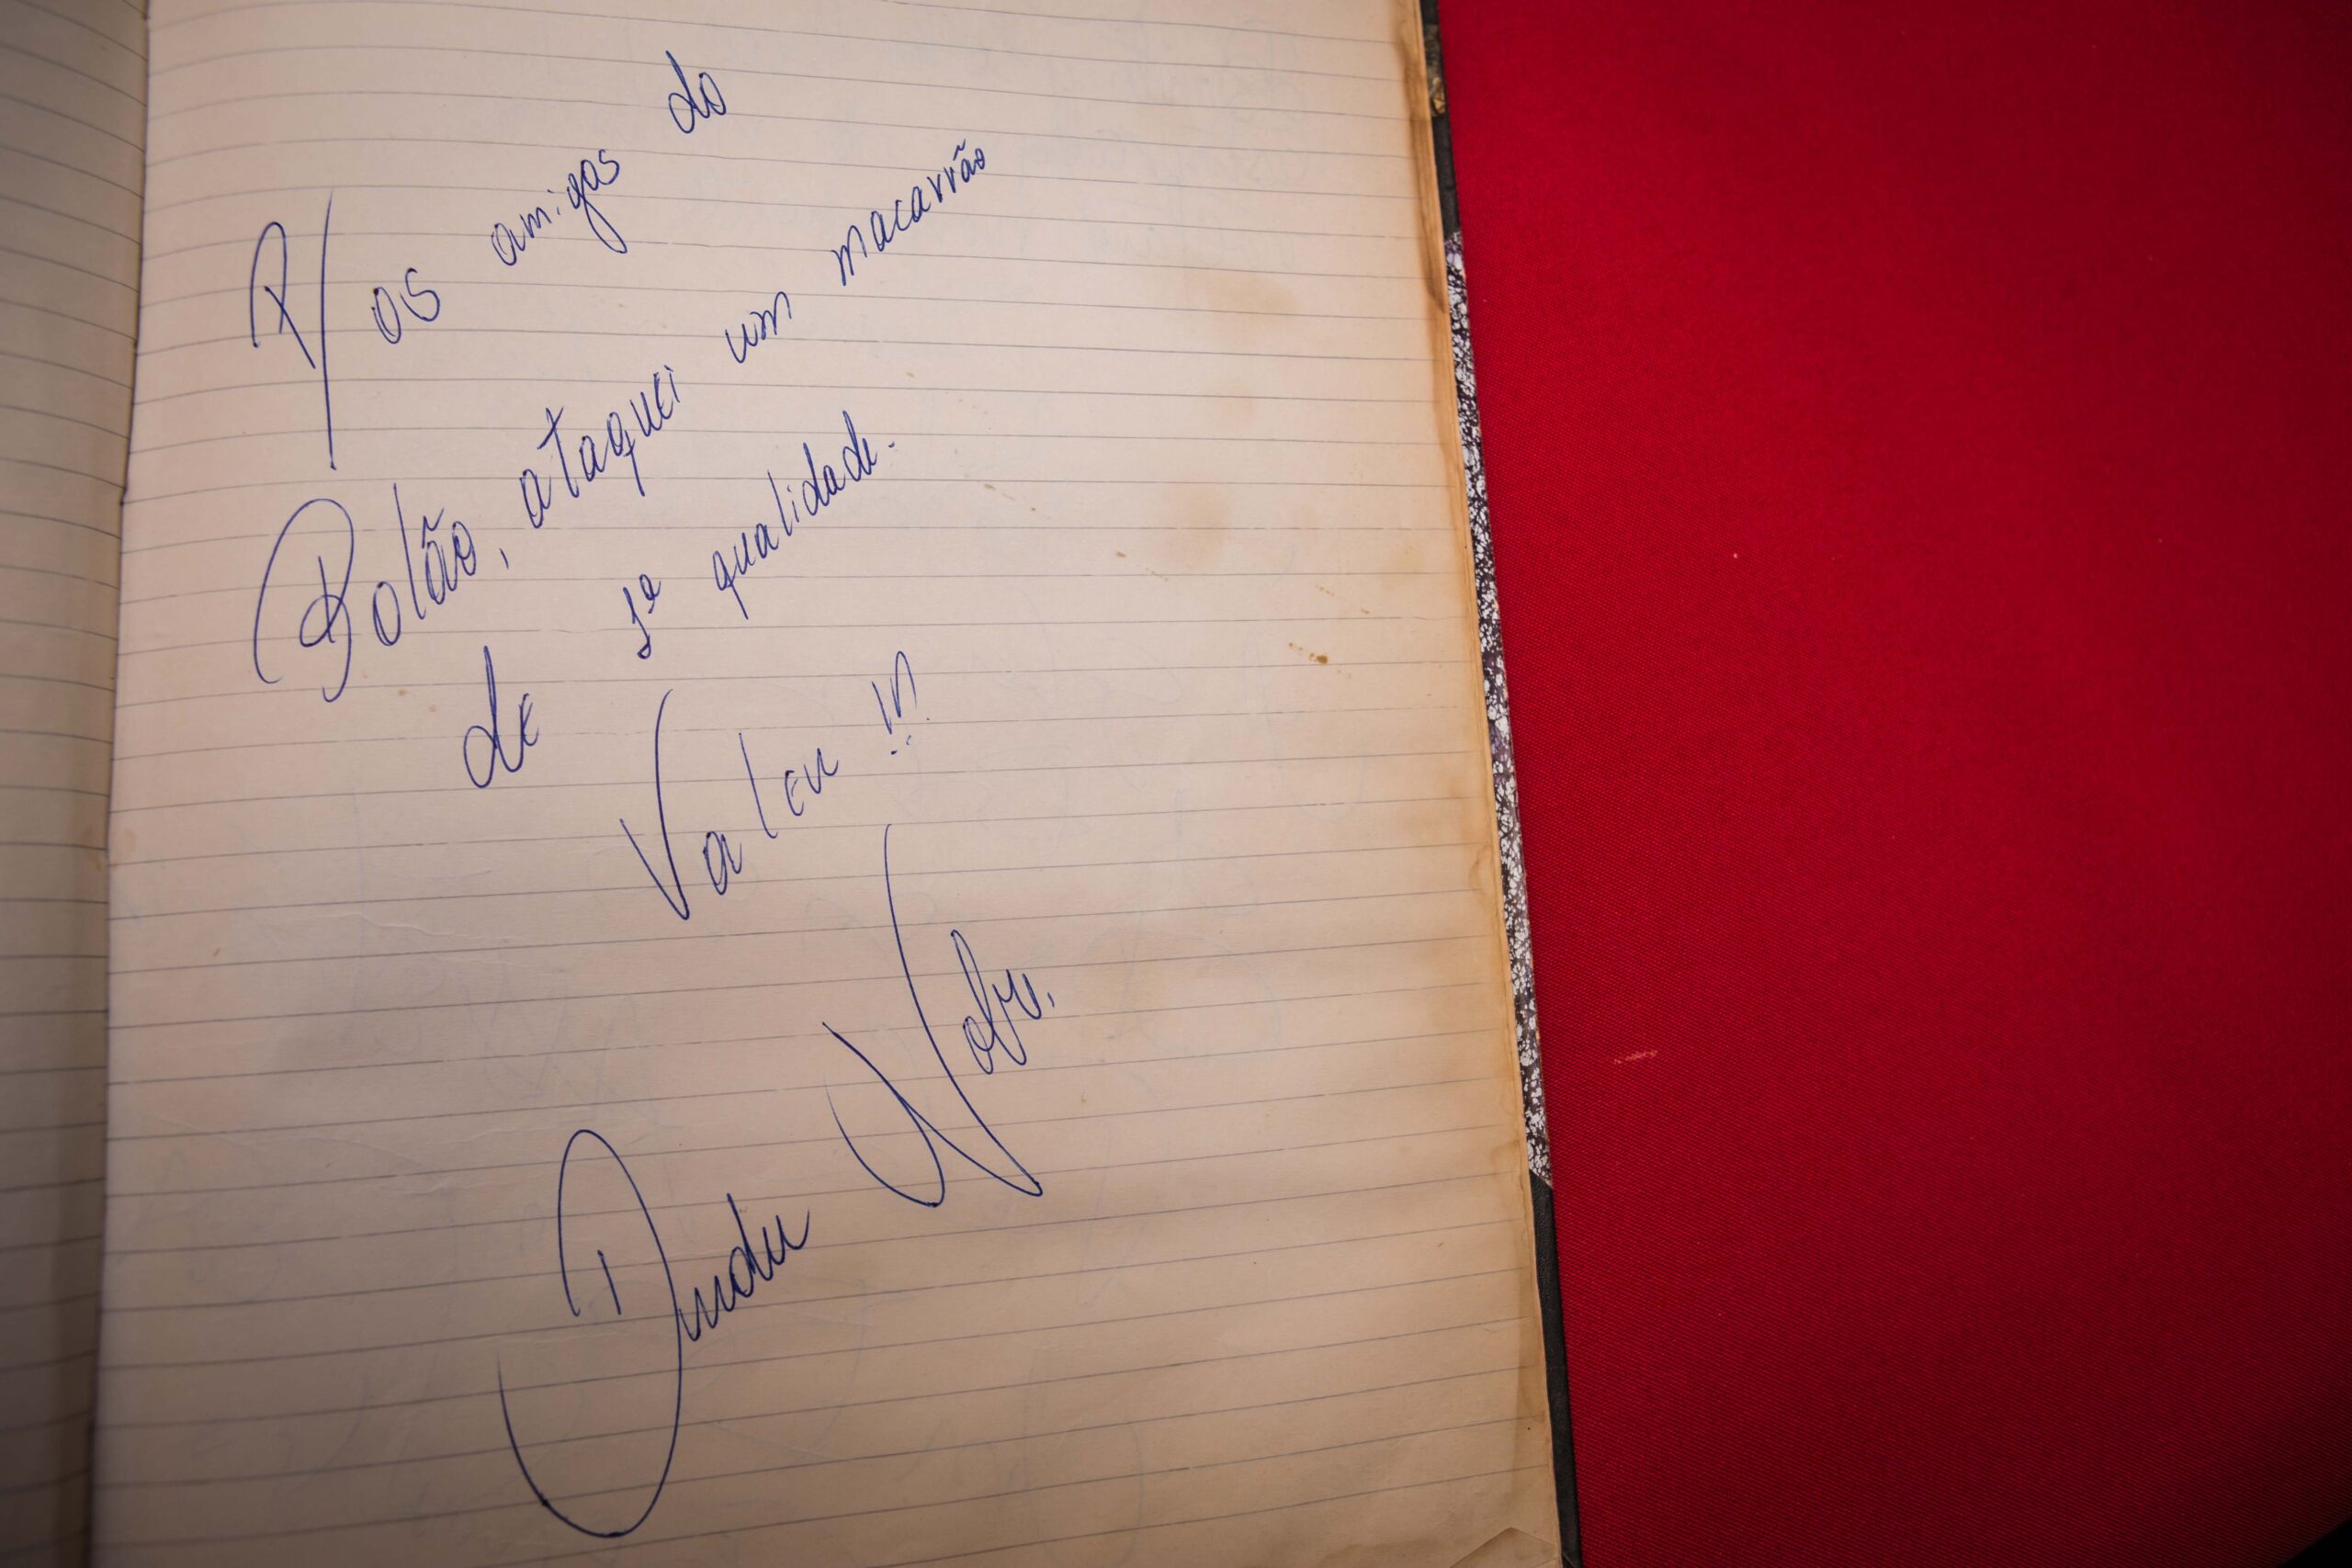 P/ os amigos do
Bolão, ataquei um macarrão
de 1ª qualidade.
Valeu !!!
Dudu Nobre.